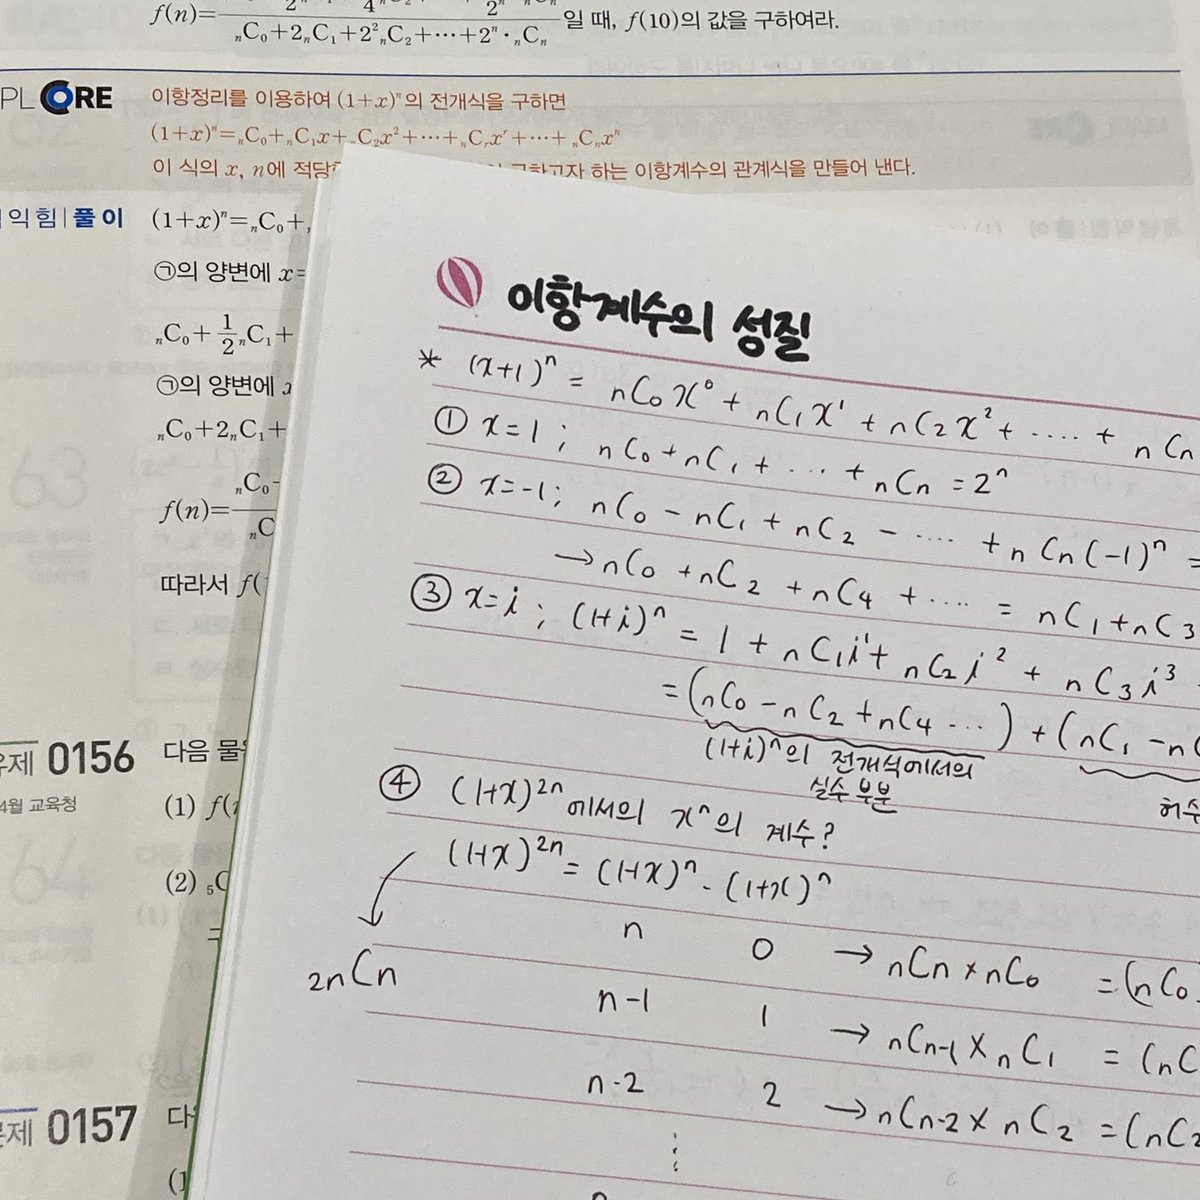 f(n)=
ₙC₀+2ₙC₁+2²ₙC₂+⋯+2ⁿ·ₙCₙ
일 때, f(10)의 값을 구하여라.
PL CORE
이항정리를 이용하여 (1+x)ⁿ의 전개식을 구하면
(1+x)ⁿ=ₙC₀+ₙC₁x+ₙC₂x²+⋯+ₙCᵣxʳ+⋯+ₙCₙxⁿ
이 식의 x, n에 적당 하는 이항계수의 관계식을 만들어 낸다.
익힘|풀이
(1+x)ⁿ=ₙC₀+
㉠의 양변에 x=
ₙC₀+1/2 ₙC₁+
㉠의 양변에 x
ₙC₀+2ₙC₁+
f(n)=
따라서 f(
제 0156
다음
4월 교육청
(1) f(
(2) ₅C
제 0157
(1
이항계수의 성질
* (x+1)ⁿ = nC₀x⁰ + nC₁x¹ + nC₂x² + ···· + nCn
① x=1 ; nC₀+nC₁ + ··· + nCn = 2ⁿ
② x=-1 ; nC₀ - nC₁ + nC₂ - ···· + nCn(-1)ⁿ =
→ nC₀ + nC₂ + nC₄ + ···· = nC₁+nC₃
③ x=i ; (1+i)ⁿ = 1 + nC₁i¹ + nC₂i² + nC₃i³
= (nC₀ - nC₂ + nC₄ ···) + (nC₁ - n
(1+i)ⁿ의 전개식에서의
실수 부분
허수
④ (1+x)²ⁿ에서의 xⁿ의 계수?
(1+x)²ⁿ = (1+x)ⁿ · (1+x)ⁿ
n 0 → nCn × nC₀ = (nC₀
2nCn
n-1 1 → nCn-1 × nC₁ = (nC
n-2 2 → nCn-2 × nC₂ = (nC₂